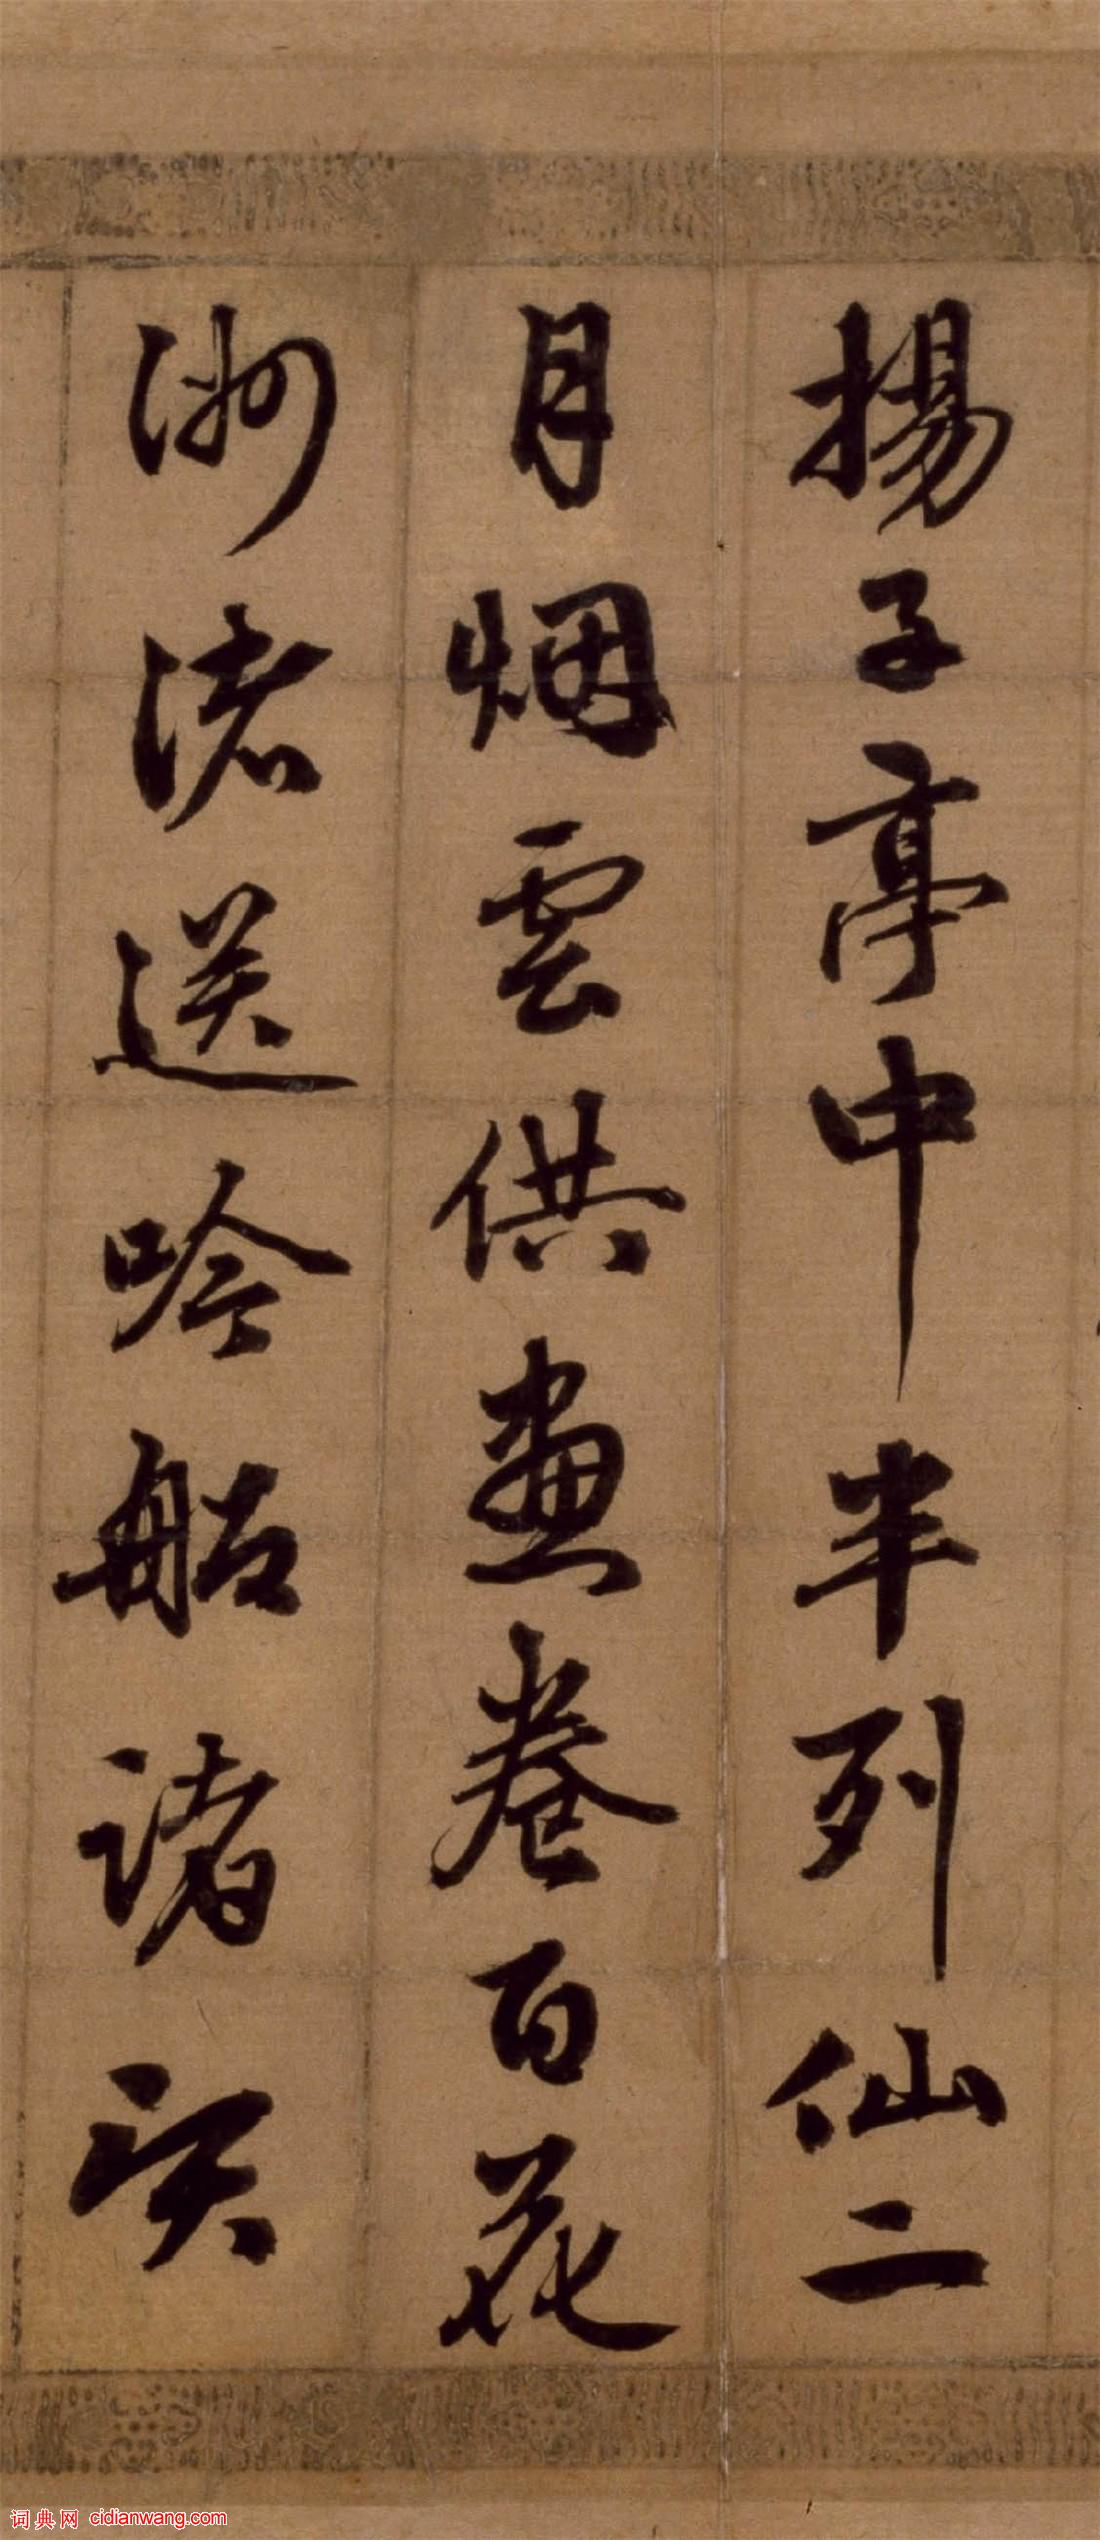 揚子亭中半列仙二
月烟雲供畫卷百花
洲渚送吟船諸
词典网 cidianwang.com